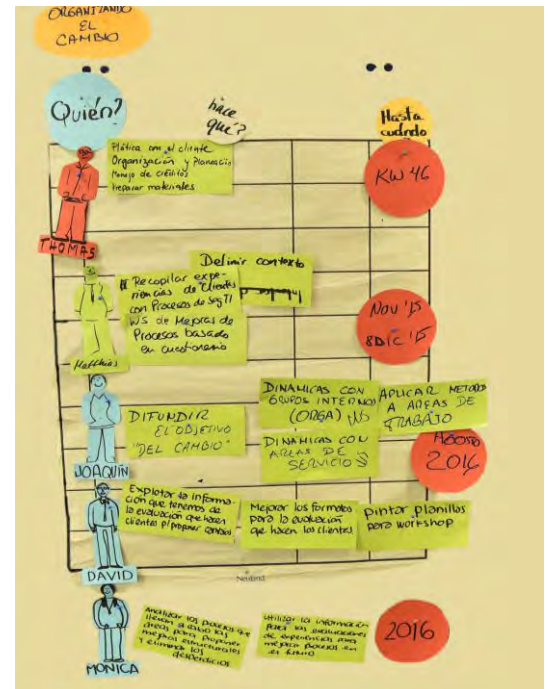 ORGANIZANDO
EL
CAMBIO
Quién?
hace
qué?
Hasta
cuándo
Plática con el cliente
Organización y Planeación
Manejo de créditos
Preparar materiales
KW 46
THOMAS
Definir contexto
Recopilar expe-
riencias de clientes
con Procesos de Seg TI
WS de Mejoras de
Procesos basado
en cuestionario
NOV '15
8 DIC '15
Matthias
DIFUNDIR
EL OBJETIVO
"DEL CAMBIO"
DINAMICAS CON
GRUPOS INTERNOS
(ORGA) WS
APLICAR METODO
A AREAS DE
TRABAJO
DINAMICAS CON
AREAS DE
SERVICIO
AGOSTO
2016
JOAQUÍN
Explotar la informa-
ción que tenemos de
la evaluación que hacen
clientes p/ proponer cambios
Mejorar los formatos
para la evaluación
que hacen los clientes
pintar planillas
para workshop
DAVID
Neuland
Analizar los procesos que
llevan a cabo las
áreas para proponer
mejoras estructurales
y eliminar los
desperdicios
utilizar la información
para las evaluaciones
de experiencias para
mejorar procesos en
el futuro
2016
MONICA